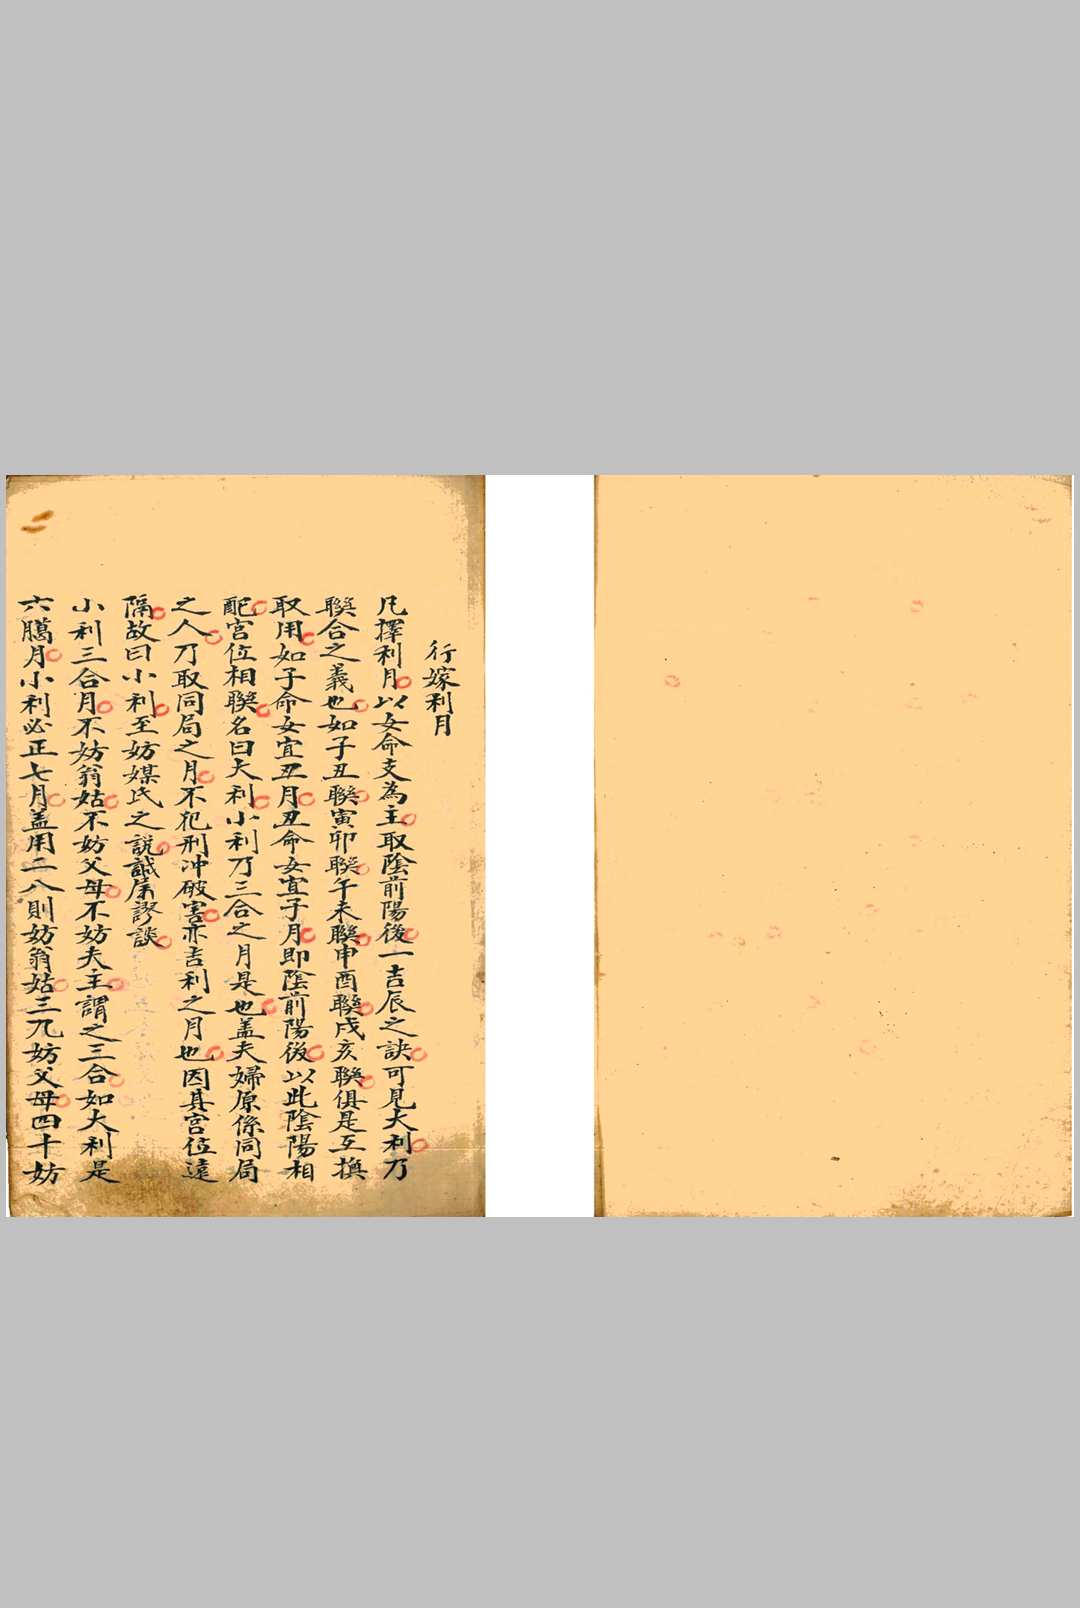 行嫁利月
凡擇利月以女命支為主取陰前陽後一吉辰之訣可見大利乃
聯合之義也如子丑聯寅卯聯午未聯申酉聯戌亥聯俱是互換
取用如子命女宜丑月丑命女宜子月即陰前陽後以此陰陽相
配宮位相聯名曰大利小利乃三合之月是也盖夫婦原係同局
之人乃取同局之月不犯刑冲破害亦吉利之月也因其宮位遠
隔故曰小利至妨媒氏之說誠屬謬談
小利三合月不妨翁姑不妨父母不妨夫主謂之三合如大利是
六臈月小利必正七月盖用二八則妨翁姑三九妨父母四十妨